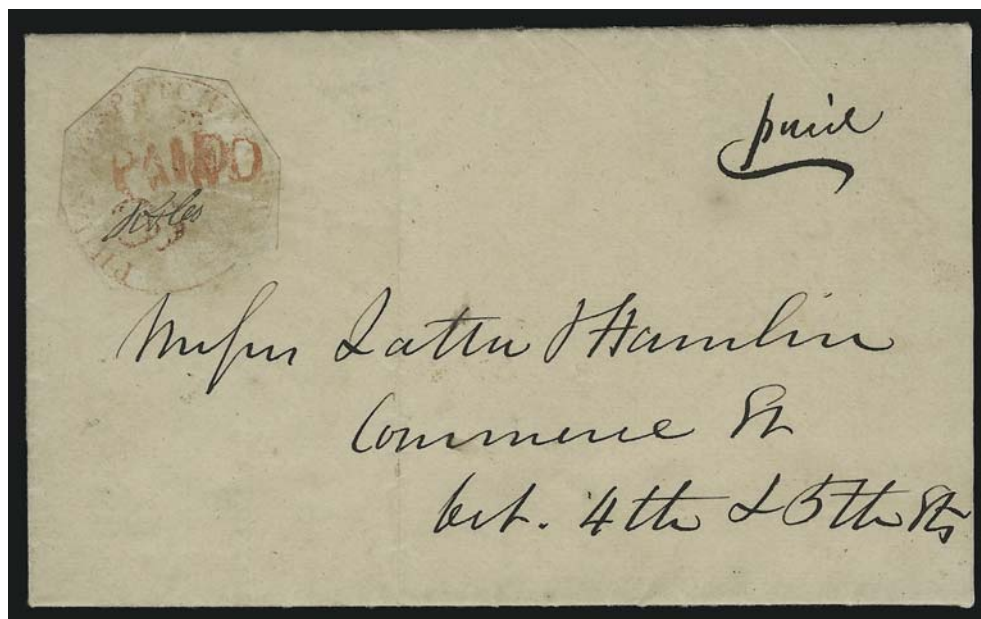 paid
PAID
Messrs Latta & Hamlin
Commerce St
bet. 4th & 5th Sts